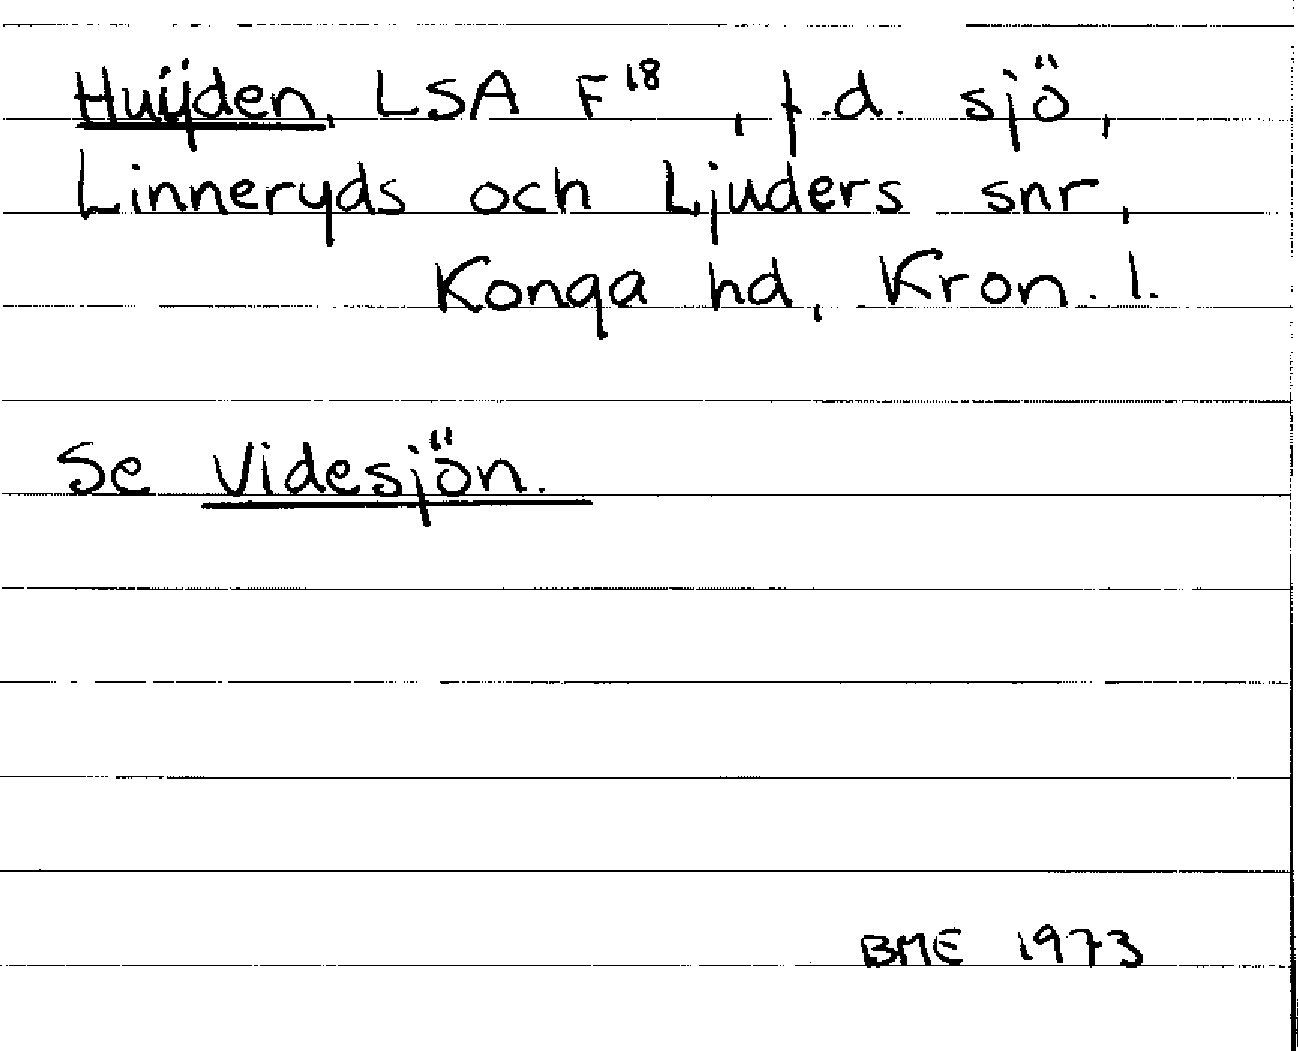 Huÿden, LSA F¹⁸, f.d. sjö,
Linneryds och Ljuders snr,
Konga hd, Kron. l.
Se Videsjön.
BME 1973